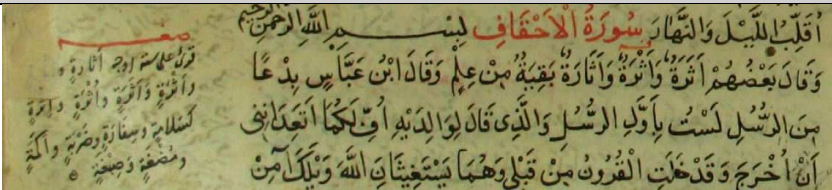 أُقَلِّبُ اللَّيْلَ وَالنَّهَارَ سُورَةُ الْأَحْقَافِ بِسْمِ اللَّهِ الرَّحْمَنِ الرَّحِيمِ
وَقَالَ بَعْضُهُمْ أَثَرَةٌ وَأُثْرَةٌ وَأَثَارَةٌ بَقِيَّةٌ مِنْ عِلْمٍ وَقَالَ ابْنُ عَبَّاسٍ بِدْعًا
مِنَ الرُّسُلِ لَسْتُ بِأَوَّلِ الرُّسُلِ وَالَّذِي قَالَ لِوَالِدَيْهِ أُفٍّ لَكُمَا أَتَعِدَانِنِي
أَنْ أُخْرَجَ وَقَدْ خَلَتِ الْقُرُونُ مِنْ قَبْلِي وَهُمَا يَسْتَغِيثَانِ اللَّهَ وَيْلَكَ آمِنْ
قرئ على ستة اوجه أثارة و
وأثرة وأثرة وأثرة وإثرة
وضربة وأكمة
ومضغة وصبغة